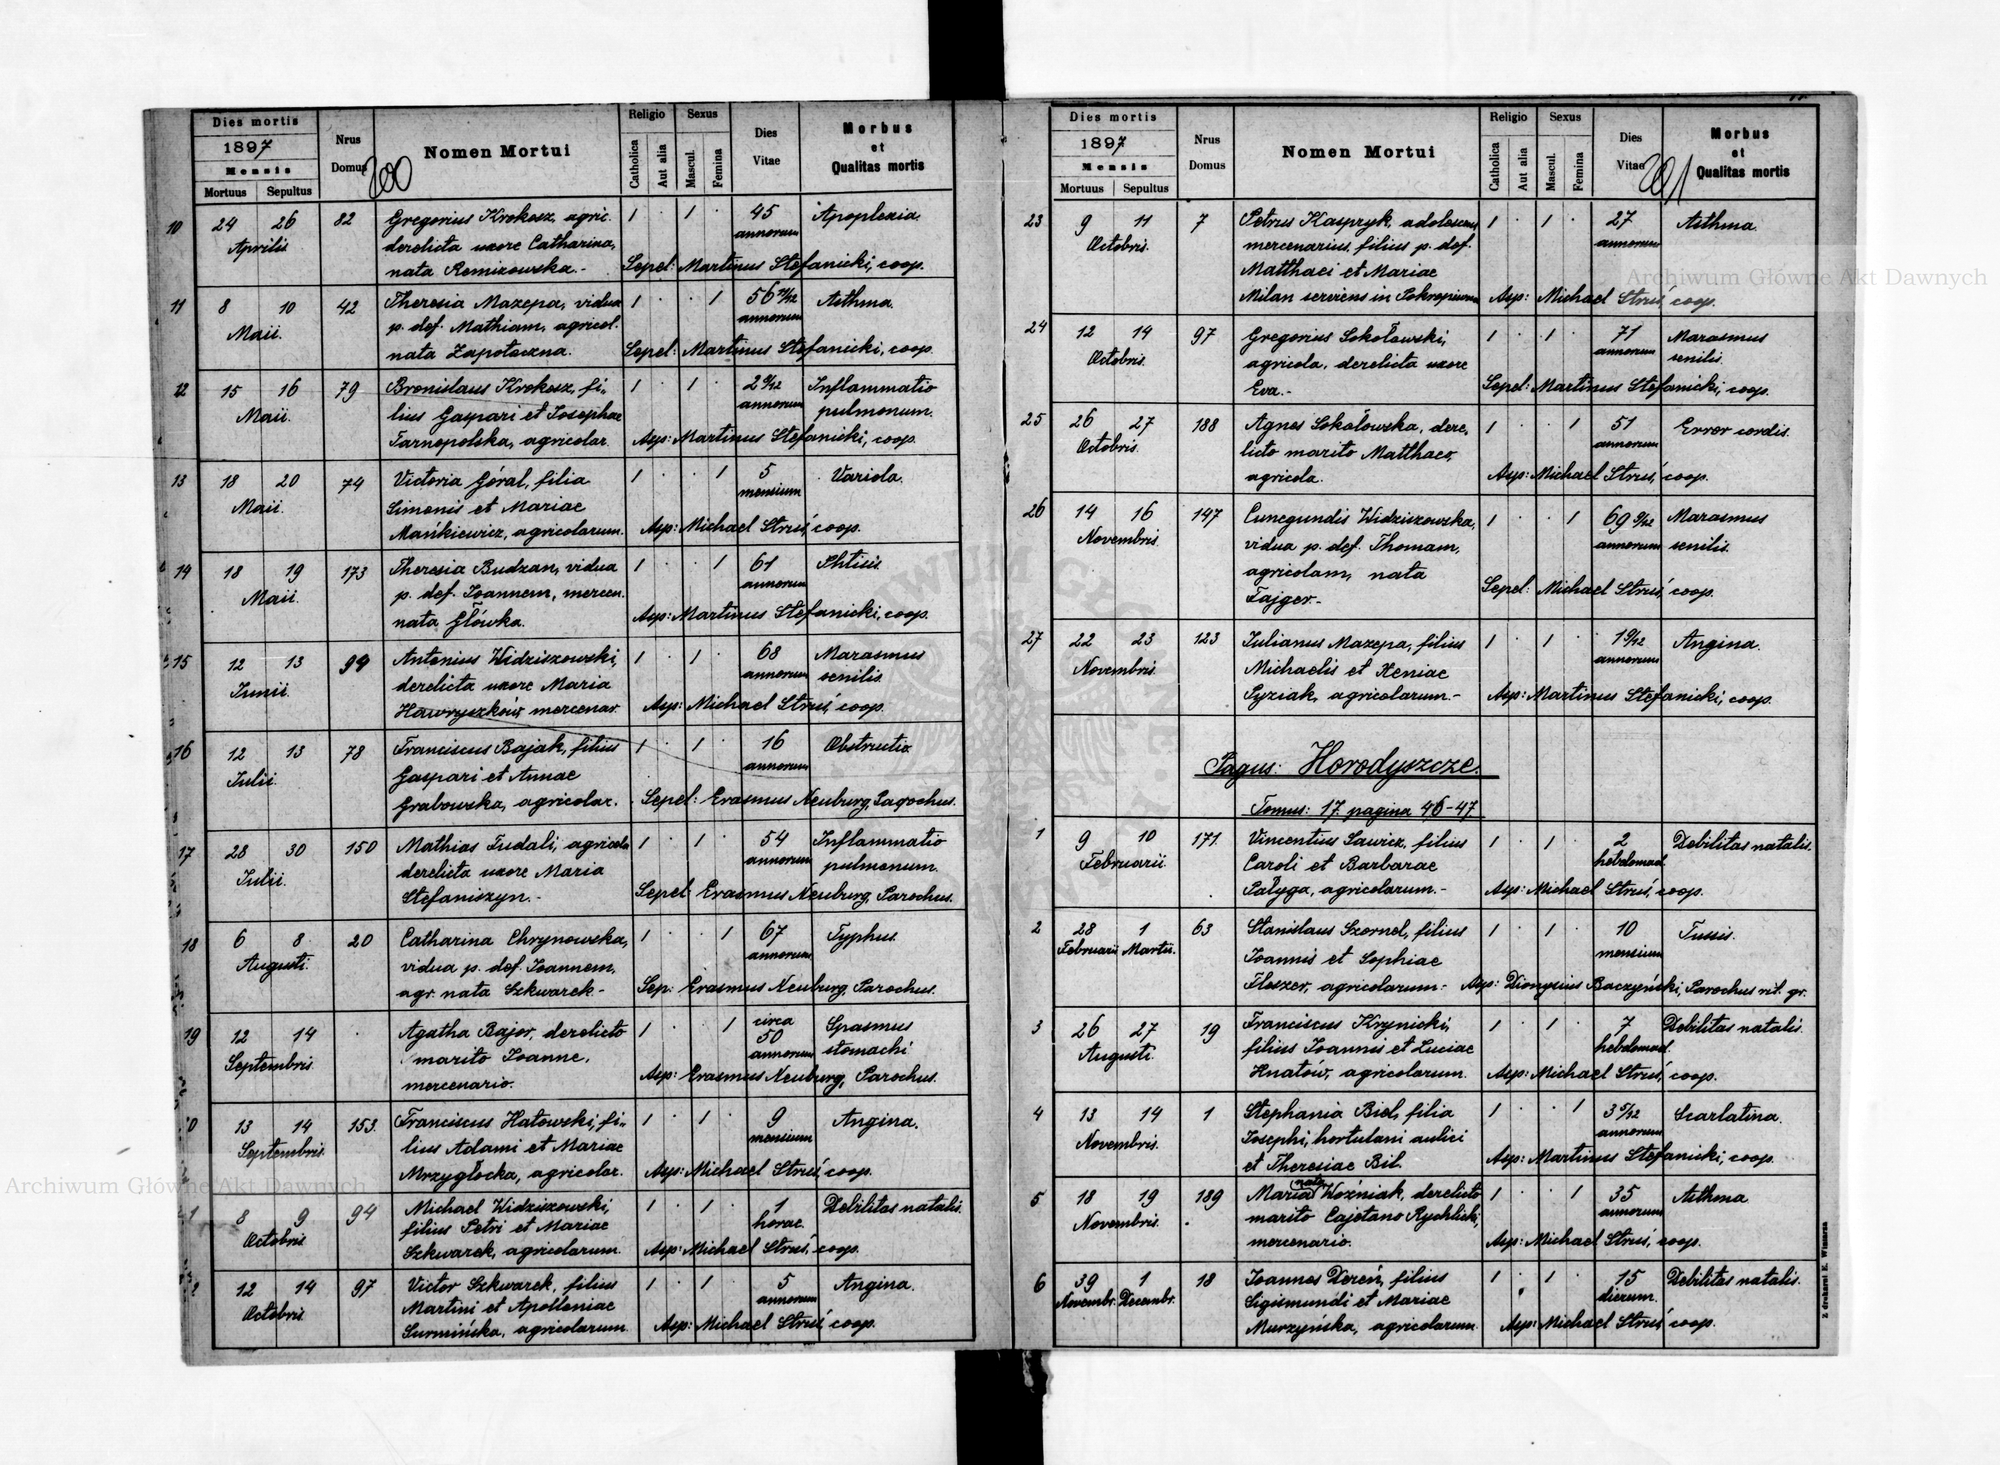 Dies mortis
1897
Mensis
Mortuus Sepultus
Nrus
Domus
200
Nomen Mortui
Religio
Catholica
Aut alia
Sexus
Mascul.
Femina
Dies
Vitae
Morbus
et
Qualitas mortis
10 24 26 82 Gregorius Krokosz, agric. 1 · 1 · 45 Apoplexia.
Aprilis derelicta uxore Catharina, annorum
nata Remizowska.- Sepel: Martinus Stefanicki, coop.
11 8 10 42 Theresia Mazepa, vidua 1 · · 1 56 11/12 Asthma.
Maii. p. def. Mathiam, agricol. annorum
nata Zapoteczna. Sepel: Martinus Stefanicki, coop.
12 15 16 79 Bronislaus Krokosz, fi- 1 · 1 · 2 9/12 Inflammatio
Maii. lius Gaspari et Josephae annorum pulmonum.
Tarnopolska, agricolar. Asp: Martinus Stefanicki, coop.
13 18 20 74 Victoria Góral, filia 1 · · 1 5 Variola.
Maii. Simonis et Mariae mensium
Mańkiewicz, agricolarum. Asp: Michael Struś, coop.
14 18 19 173 Theresia Budzan, vidua 1 · · 1 61 Phtisis
Maii. p. def. Joannem, mercen. annorum
nata Główka. Asp: Martinus Stefanicki, coop.
15 12 13 94 Antonius Widziszowski, 1 · 1 · 68 Marasmus
Junii. derelicta uxore Maria annorum senilis.
Hawryszków mercenar. Asp: Michael Struś, coop.
16 12 13 78 Franciscus Bajak, filius 1 · 1 · 16 Obstructio
Julii. Gaspari et Annae annorum
Grabowska, agricolar. Sepel: Erasmus Neuburg, Parochus.
17 28 30 150 Mathias Tudali, agricola 1 · 1 · 54 Inflammatio
Julii. derelicta uxore Maria annorum pulmonum.
Stefaniszyn.- Sepel: Erasmus Neuburg, Parochus.
18 6 8 20 Catharina Chrynowska, 1 · · 1 67 Typhus.
Augusti. vidua p. def. Joannem, annorum
agr. nata Szkwarek- Sep: Erasmus Neuburg, Parochus.
19 12 14 · Agatha Bajor, derelicto 1 · · 1 circa 50 Spasmus
Septembris. marito Joanne, annorum stomachi
mercenario. Asp: Erasmus Neuburg, Parochus.
0 13 14 153. Franciscus Hatowski, fi- 1 · 1 · 9 Angina.
Septembris. lius Adami et Mariae mensium
Mrzygłocka, agricolar. Asp: Michael Struś, coop.
1 8 9 94 Michael Widziszowski, 1 · 1 · 1 Debilitas natalis.
Octobris. filius Petri et Mariae horae
Szkwarek, agricolarum. Asp: Michael Struś, coop.
2 12 14 97 Victor Szkwarek, filius 1 · 1 · 5 Angina.
Octobris. Martini et Apolloniae annorum
Surmińska, agricolarum. Asp: Michael Struś, coop.
Dies mortis
1897
Mensis
Mortuus Sepultus
Nrus
Domus
Nomen Mortui
Religio
Catholica
Aut alia
Sexus
Mascul.
Femina
Dies
Vitae
201
Morbus
et
Qualitas mortis
23 9 11 7 Petrus Kasprzyk, adolescens 1 · 1 · 27 Asthma.
Octobris. mercenarius, filius p. def. annorum
Matthaei et Mariae
Milan serviens in Pokropiwna Asp: Michael Struś, coop.
24 12 14 97 Gregorius Sokołowski, 1 · 1 · 71 Marasmus
Octobris. agricola, derelicta uxore annorum senilis.
Eva.- Sepel: Martinus Stefanicki, coop.
25 26 27 188 Agnes Sokołowska, dere- 1 · · 1 51 Error cordis.
Octobris. licto marito Matthaeo, annorum
agricola. Asp: Michael Struś, coop.
26 14 16 147 Cunegundis Widziszowska, 1 · · 1 69 9/12 Marasmus
Novembris. vidua p. def. Thomam, annorum senilis.
agricolam, nata
Fajger.- Sepel: Michael Struś, coop.
27 22 23 123 Julianus Mazepa, filius 1 · 1 · 1 9/12 Angina.
Novembris. Michaelis et Xeniae annorum
Pyziak, agricolarum.- Asp: Martinus Stefanicki, coop.
Pagus: Horodyszcze.
Tomus: 17. pagina 46-47.
1 9 10 171. Vincentius Sawicz, filius 1 · 1 · 2 Debilitas natalis.
Februarii. Caroli et Barbarae hebdomad.
Pałyga, agricolarum.- Asp: Michael Struś, coop.
2 28 1 63 Stanislaus Szornel, filius 1 · 1 · 10 Tussis.
Februarii Martii. Joannis et Sophiae mensium
Fleszer, agricolarum.- Asp: Dionysius Baczyński, Parochus rit. gr.
3 26 27 19 Franciscus Krynicki, 1 · 1 · 7 Debilitas natalis.
Augusti. filius Joannis et Luciae hebdomad.
Hnatów, agricolarum. Asp: Michael Struś, coop.
4 13 14 1 Stephania Biel, filia 1 · · 1 3 5/12 Scarlatina.
Novembris. Josephi, hortulani aulici annorum
et Theresiae Bil. Asp: Martinus Stefanicki, coop.
nata
5 18 19 189 Maria Woźniak, derelicto 1 · · 1 35 Asthma
Novembris. marito Cajetano Rychlicki, annorum
mercenario. Asp: Michael Struś, coop.
6 39 1 18 Joannes Dereń, filius 1 · 1 · 15 Debilitas natalis.
Novembr. Decembr. Sigismundi et Mariae dierum.
Murzyńska, agricolarum. Asp: Michael Struś, coop.
Z drukarni E. Winiarza
Archiwum Główne Akt Dawnych
Archiwum Główne Akt Dawnych